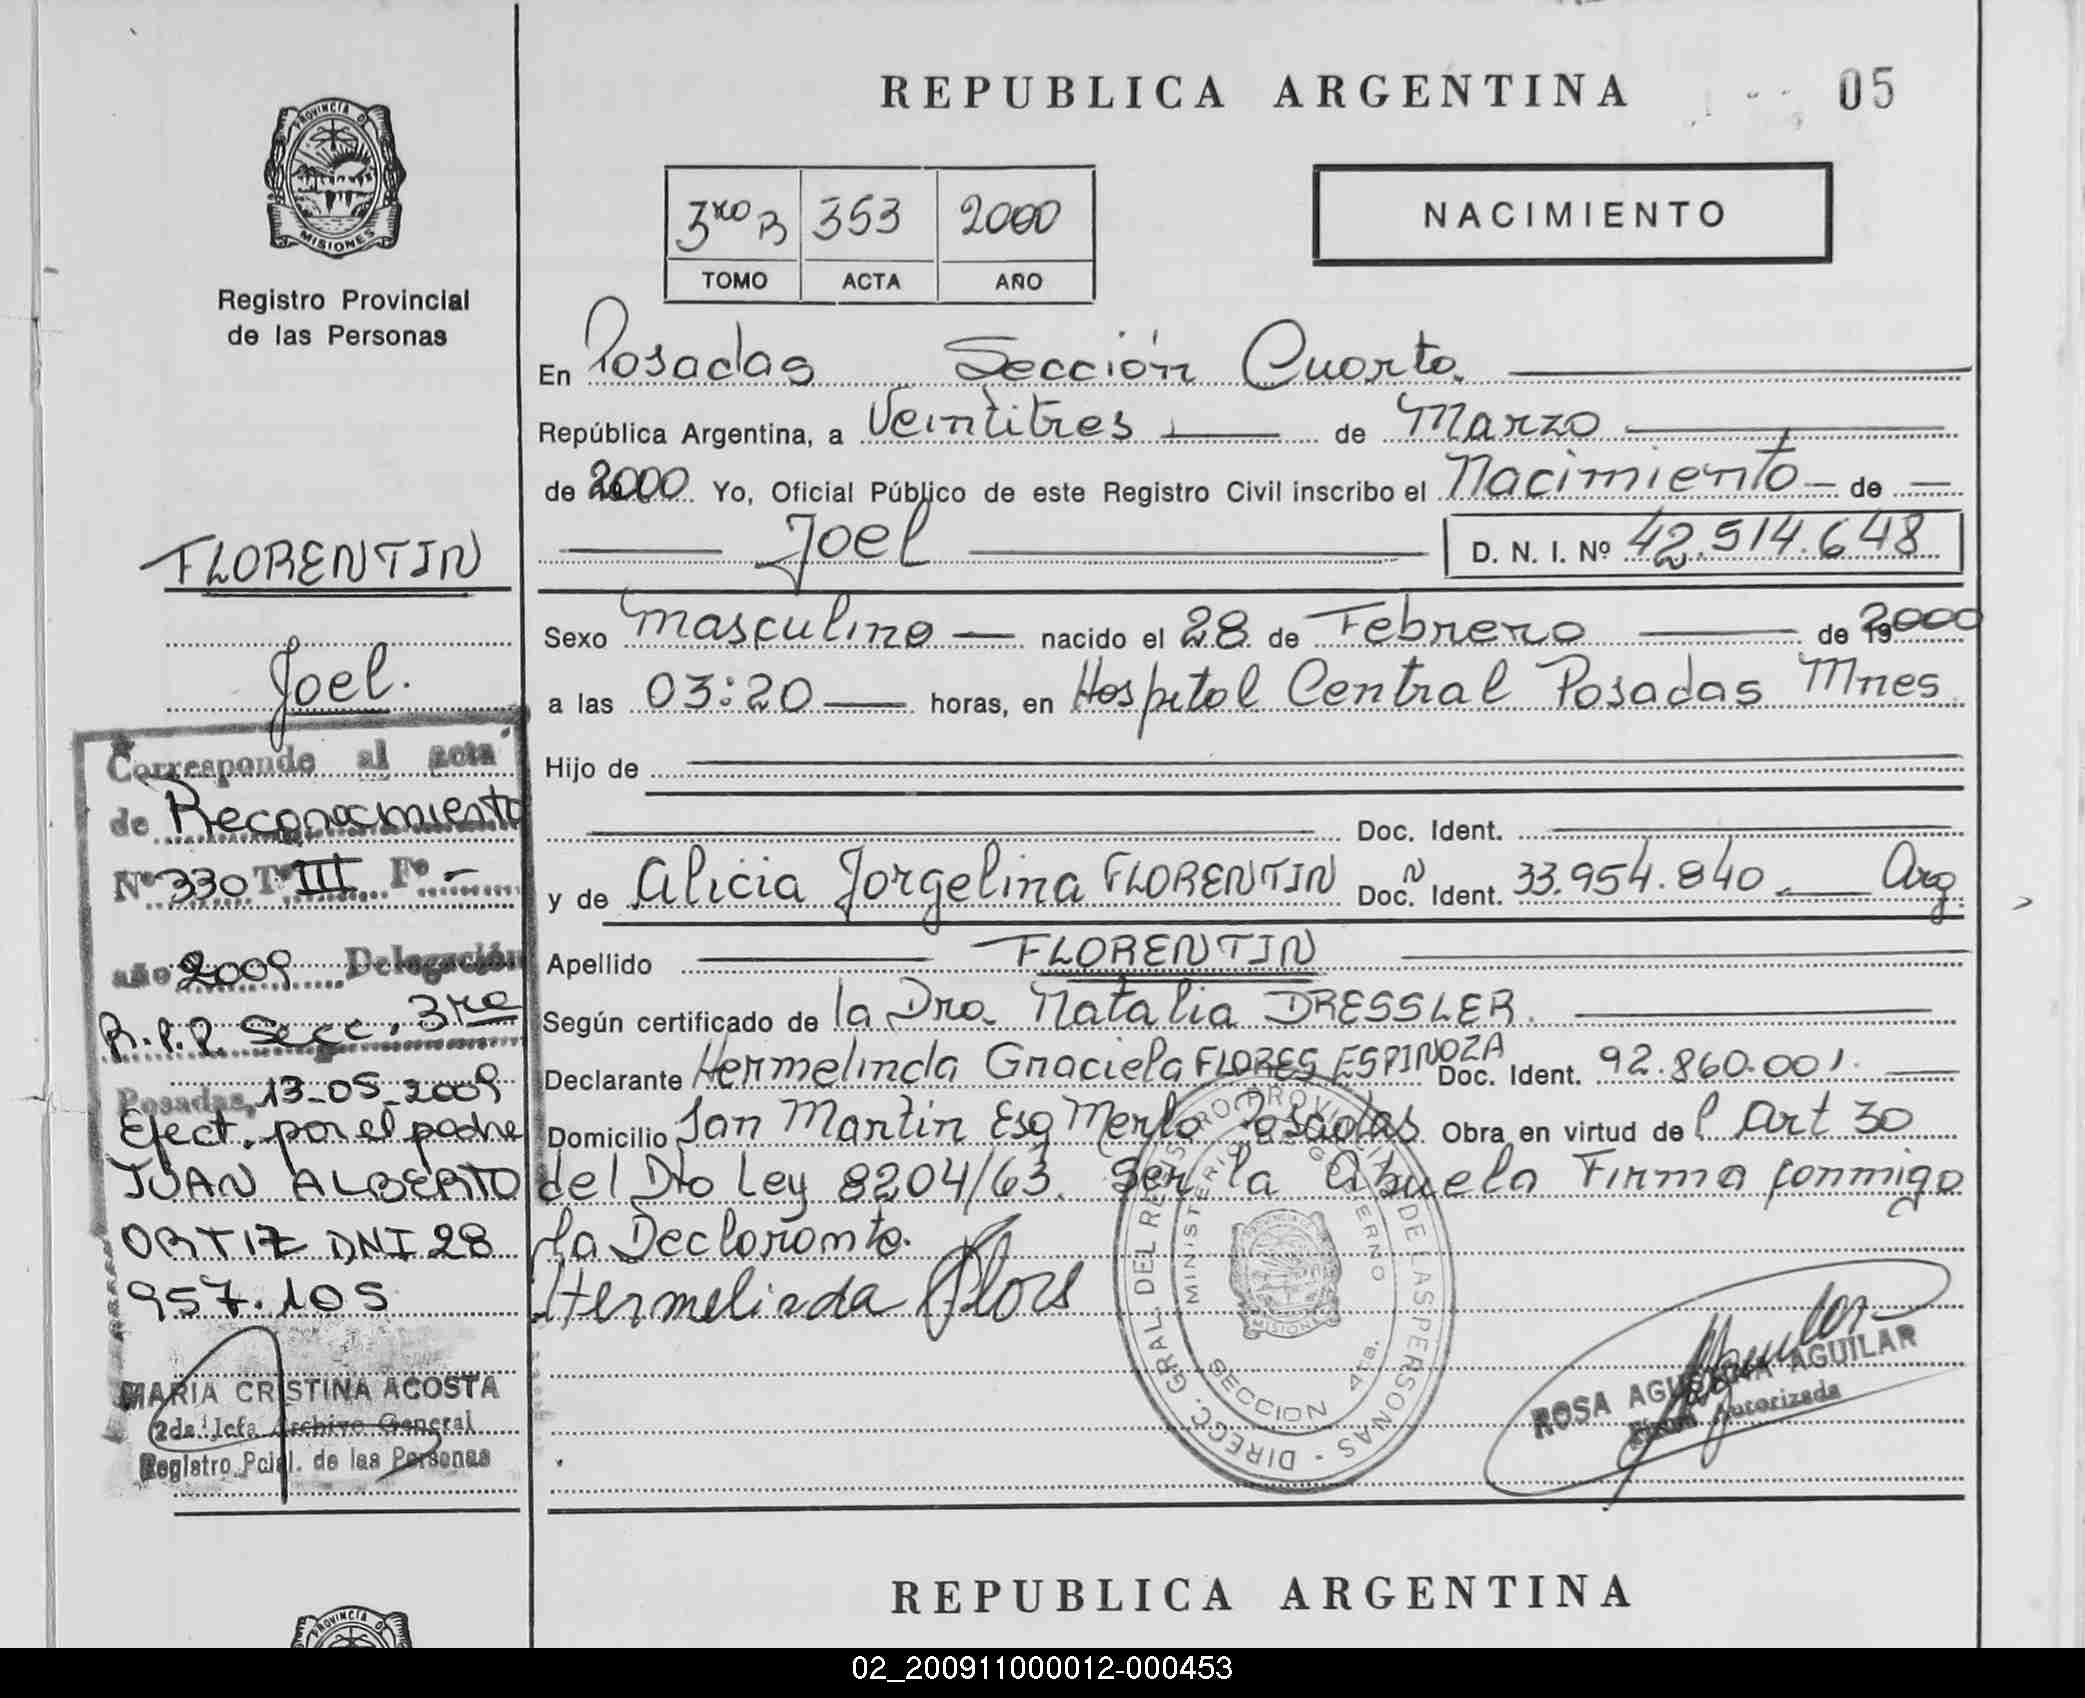 REPUBLICA ARGENTINA
05
PROVINCIA DE
MISIONES
Registro Provincial
de las Personas
3ro B 353 2000
TOMO ACTA AÑO
NACIMIENTO
En Posadas Sección Cuarta
República Argentina, a Veintitres de Marzo
de 2000 Yo, Oficial Público de este Registro Civil inscribo el Nacimiento de
Joel D. N. I. Nº 42.514.648
Sexo Masculino nacido el 28 de Febrero de 2000
a las 03:20 horas, en Hospital Central Posadas Mnes
Hijo de
Doc. Ident.
y de Alicia Jorgelina FLORENTIN Doc. N Ident. 33.954.840 Arg.
Apellido FLORENTIN
Según certificado de la Dra. Natalia DRESSLER.
Declarante Hermelinda Graciela FLORES ESPINOZA Doc. Ident. 92.860.001.
Domicilio San Martin Esq Merlo Posadas Obra en virtud del Art 30
del Dto Ley 8204/63. Ser la Abuela Firma conmigo
la Declarante.
Hermelinda Flores
FLORENTIN
Joel.
Corresponde al acta
de Reconocimiento
Nº 330 Tº III Fº -
año 2009 Delegación
R.P.P. Secc. 3ra
Posadas, 13-05-2009
Efect. por el padre
JUAN ALBERTO
ORTIZ DNI 28
957.105
MARIA CRISTINA ACOSTA
2da. Jefa Archivo General
Registro Pcial. de las Personas
DIRECC. GRAL. DEL REGISTRO PROVINCIAL DE LAS PERSONAS
MINISTERIO DE GOBIERNO
MISIONES
SECCION 4ta.
ROSA AGUSTINA AGUILAR
Firma Autorizada
REPUBLICA ARGENTINA
PROVINCIA DE
02_200911000012-000453